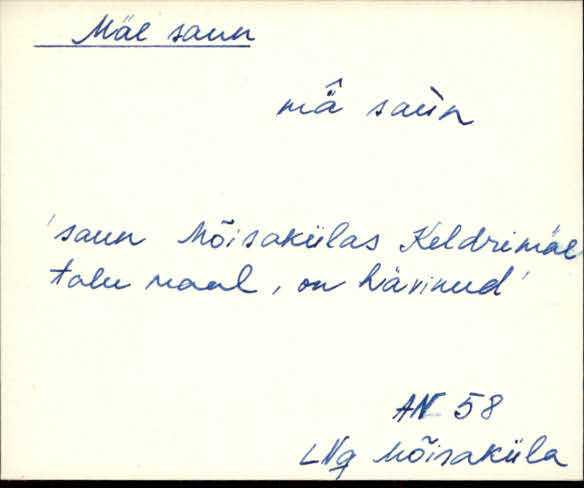 Mäe saun
mä̂ saùn
'saun Mõisakülas Keldrimäe
talu maal, on hävinud'
AN 58
LNg Mõisaküla